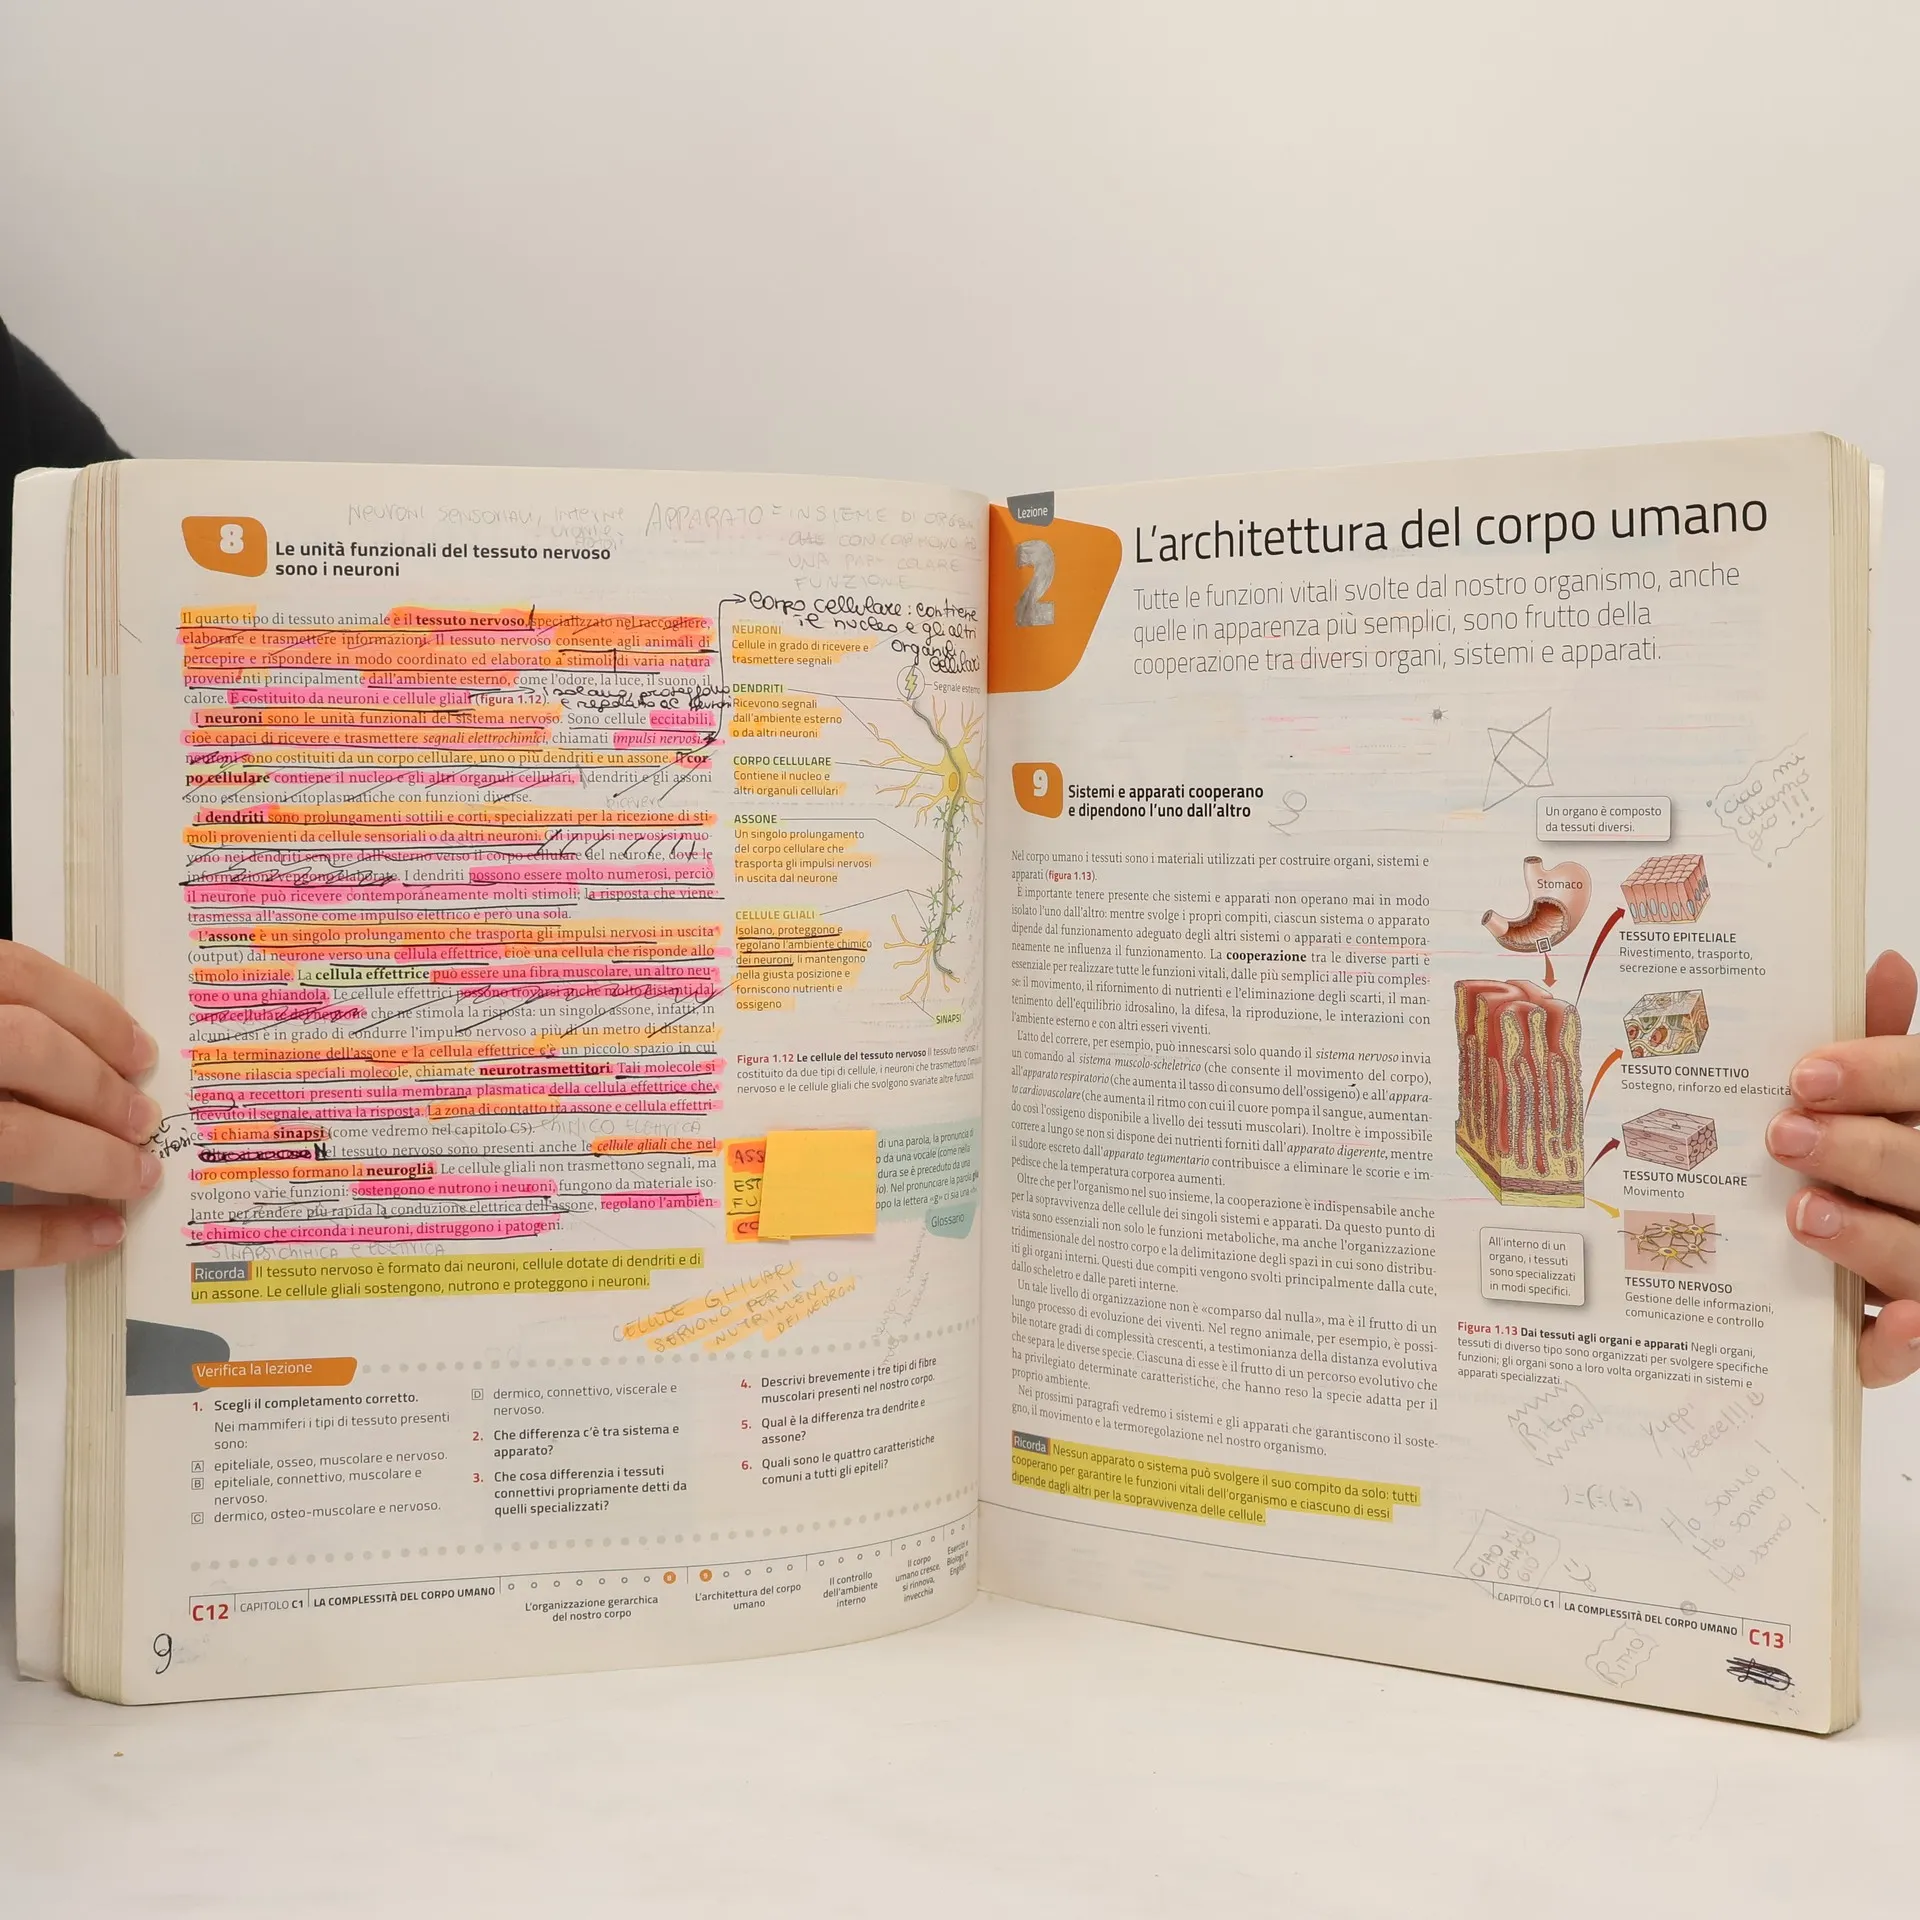 NEURONI SENSORIALI, INTERNE
APPARATO = INSIEME DI
CONCORRONO AD
UNA
FUNZIONE
8
Le unità funzionali del tessuto nervoso
sono i neuroni
Il quarto tipo di tessuto animale è il tessuto nervoso, specializzato nel raccogliere,
elaborare e trasmettere informazioni. Il tessuto nervoso consente agli animali di
percepire e rispondere in modo coordinato ed elaborato a stimoli di varia natura
provenienti principalmente dall'ambiente esterno, come l'odore, la luce, il suono, il
calore. È costituito da neuroni e cellule gliali (figura 1.12).
isolano, proteggono
e regolano
I neuroni sono le unità funzionali del sistema nervoso. Sono cellule eccitabili,
cioè capaci di ricevere e trasmettere segnali elettrochimici, chiamati impulsi nervosi. I
neuroni sono costituiti da un corpo cellulare, uno o più dendriti e un assone. Il cor-
po cellulare contiene il nucleo e gli altri organuli cellulari, i dendriti e gli assoni
sono estensioni citoplasmatiche con funzioni diverse.
ricevere
I dendriti sono prolungamenti sottili e corti, specializzati per la ricezione di sti-
moli provenienti da cellule sensoriali o da altri neuroni. Gli impulsi nervosi si muo-
vono nei dendriti sempre dall'esterno verso il corpo cellulare del neurone, dove le
informazioni vengono elaborate. I dendriti possono essere molto numerosi, perciò
il neurone può ricevere contemporaneamente molti stimoli: la risposta che viene
trasmessa all'assone come impulso elettrico è però una sola.
L'assone è un singolo prolungamento che trasporta gli impulsi nervosi in uscita
(output) dal neurone verso una cellula effettrice, cioè una cellula che risponde allo
stimolo iniziale. La cellula effettrice può essere una fibra muscolare, un altro neu-
rone o una ghiandola. Le cellule effettrici possono trovarsi anche molto distanti dal
corpo cellulare del neurone che ne stimola la risposta: un singolo assone, infatti, in
alcuni casi è in grado di condurre l'impulso nervoso a più di un metro di distanza!
Tra la terminazione dell'assone e la cellula effettrice c'è un piccolo spazio in cui
l'assone rilascia speciali molecole, chiamate neurotrasmettitori. Tali molecole si
legano a recettori presenti sulla membrana plasmatica della cellula effettrice che,
ricevuto il segnale, attiva la risposta. La zona di contatto tra assone e cellula effettri-
ce si chiama sinapsi (come vedremo nel capitolo C5). CHIMICO ELETTRICA
Nel tessuto nervoso sono presenti anche le cellule gliali che nel
loro complesso formano la neuroglia. Le cellule gliali non trasmettono segnali, ma
svolgono varie funzioni: sostengono e nutrono i neuroni, fungono da materiale iso-
lante per rendere più rapida la conduzione elettrica dell'assone, regolano l'ambien-
te chimico che circonda i neuroni, distruggono i patogeni.
SINAPSI CHIMICA E ELETTRICA
Ricorda Il tessuto nervoso è formato dai neuroni, cellule dotate di dendriti e di
un assone. Le cellule gliali sostengono, nutrono e proteggono i neuroni.
corpo cellulare: contiene
il nucleo e gli altri
organuli
cellulari
NEURONI
Cellule in grado di ricevere e
trasmettere segnali
Segnale esterno
DENDRITI
Ricevono segnali
dall'ambiente esterno
o da altri neuroni
CORPO CELLULARE
Contiene il nucleo e
altri organuli cellulari
ASSONE
Un singolo prolungamento
del corpo cellulare che
trasporta gli impulsi nervosi
in uscita dal neurone
CELLULE GLIALI
Isolano, proteggono e
regolano l'ambiente chimico
dei neuroni, li mantengono
nella giusta posizione e
forniscono nutrienti e
ossigeno
SINAPSI
Figura 1.12 Le cellule del tessuto nervoso Il tessuto nervoso è
costituito da due tipi di cellule, i neuroni che trasmettono l'impulso
nervoso e le cellule gliali che svolgono svariate altre funzioni.
ASS
EST
FU
CO
di una parola, la pronuncia di
o da una vocale (come nella
dura se è preceduto da una
Nel pronunciare la parola
opo la lettera «g» ci sia una
Glossario
CELLULE GHILIARI
SERVONO PER IL
NUTRIMENTO
DEI NEURONI
Verifica la lezione
1. Scegli il completamento corretto.
Nei mammiferi i tipi di tessuto presenti
sono:
A epiteliale, osseo, muscolare e nervoso.
B epiteliale, connettivo, muscolare e
nervoso.
C dermico, osteo-muscolare e nervoso.
D dermico, connettivo, viscerale e
nervoso.
2. Che differenza c'è tra sistema e
apparato?
3. Che cosa differenzia i tessuti
connettivi propriamente detti da
quelli specializzati?
4. Descrivi brevemente i tre tipi di fibre
muscolari presenti nel nostro corpo.
5. Qual è la differenza tra dendrite e
assone?
6. Quali sono le quattro caratteristiche
comuni a tutti gli epiteli?
C12 CAPITOLO C1 LA COMPLESSITÀ DEL CORPO UMANO
8
L'organizzazione gerarchica
del nostro corpo
9
L'architettura del corpo
umano
Il controllo
dell'ambiente
interno
Il corpo
umano cresce,
si rinnova,
invecchia
Esercizi e
Biology in
English
9
Lezione
2
L'architettura del corpo umano
Tutte le funzioni vitali svolte dal nostro organismo, anche
quelle in apparenza più semplici, sono frutto della
cooperazione tra diversi organi, sistemi e apparati.
9
Sistemi e apparati cooperano
e dipendono l'uno dall'altro
Nel corpo umano i tessuti sono i materiali utilizzati per costruire organi, sistemi e
apparati (figura 1.13).
È importante tenere presente che sistemi e apparati non operano mai in modo
isolato l'uno dall'altro: mentre svolge i propri compiti, ciascun sistema o apparato
dipende dal funzionamento adeguato degli altri sistemi o apparati e contempora-
neamente ne influenza il funzionamento. La cooperazione tra le diverse parti è
essenziale per realizzare tutte le funzioni vitali, dalle più semplici alle più comples-
se: il movimento, il rifornimento di nutrienti e l'eliminazione degli scarti, il man-
tenimento dell'equilibrio idrosalino, la difesa, la riproduzione, le interazioni con
l'ambiente esterno e con altri esseri viventi.
L'atto del correre, per esempio, può innescarsi solo quando il sistema nervoso invia
un comando al sistema muscolo-scheletrico (che consente il movimento del corpo),
all'apparato respiratorio (che aumenta il tasso di consumo dell'ossigeno) e all'appara-
to cardiovascolare (che aumenta il ritmo con cui il cuore pompa il sangue, aumentan-
do così l'ossigeno disponibile a livello dei tessuti muscolari). Inoltre è impossibile
correre a lungo se non si dispone dei nutrienti forniti dall'apparato digerente, mentre
il sudore escreto dall'apparato tegumentario contribuisce a eliminare le scorie e im-
pedisce che la temperatura corporea aumenti.
Oltre che per l'organismo nel suo insieme, la cooperazione è indispensabile anche
per la sopravvivenza delle cellule dei singoli sistemi e apparati. Da questo punto di
vista sono essenziali non solo le funzioni metaboliche, ma anche l'organizzazione
tridimensionale del nostro corpo e la delimitazione degli spazi in cui sono distribu-
iti gli organi interni. Questi due compiti vengono svolti principalmente dalla cute,
dallo scheletro e dalle pareti interne.
Un tale livello di organizzazione non è «comparso dal nulla», ma è il frutto di un
lungo processo di evoluzione dei viventi. Nel regno animale, per esempio, è possi-
bile notare gradi di complessità crescenti, a testimonianza della distanza evolutiva
che separa le diverse specie. Ciascuna di esse è il frutto di un percorso evolutivo che
ha privilegiato determinate caratteristiche, che hanno reso la specie adatta per il
proprio ambiente.
Nei prossimi paragrafi vedremo i sistemi e gli apparati che garantiscono il soste-
gno, il movimento e la termoregolazione nel nostro organismo.
Ricorda Nessun apparato o sistema può svolgere il suo compito da solo: tutti
cooperano per garantire le funzioni vitali dell'organismo e ciascuno di essi
dipende dagli altri per la sopravvivenza delle cellule.
Un organo è composto
da tessuti diversi.
Ciao mi
chiamo
Gio!!!
Stomaco
TESSUTO EPITELIALE
Rivestimento, trasporto,
secrezione e assorbimento
TESSUTO CONNETTIVO
Sostegno, rinforzo ed elasticità
TESSUTO MUSCOLARE
Movimento
All'interno di un
organo, i tessuti
sono specializzati
in modi specifici.
TESSUTO NERVOSO
Gestione delle informazioni,
comunicazione e controllo
Figura 1.13 Dai tessuti agli organi e apparati Negli organi,
tessuti di diverso tipo sono organizzati per svolgere specifiche
funzioni; gli organi sono a loro volta organizzati in sistemi e
apparati specializzati.
Ritmo
Yuppi
Yeeeee!!!
Ho sonno!
Ho sonno!
Ho sonno!
CIAO M
CHIAMO
GIO
CAPITOLO C1 LA COMPLESSITÀ DEL CORPO UMANO C13
RITMO